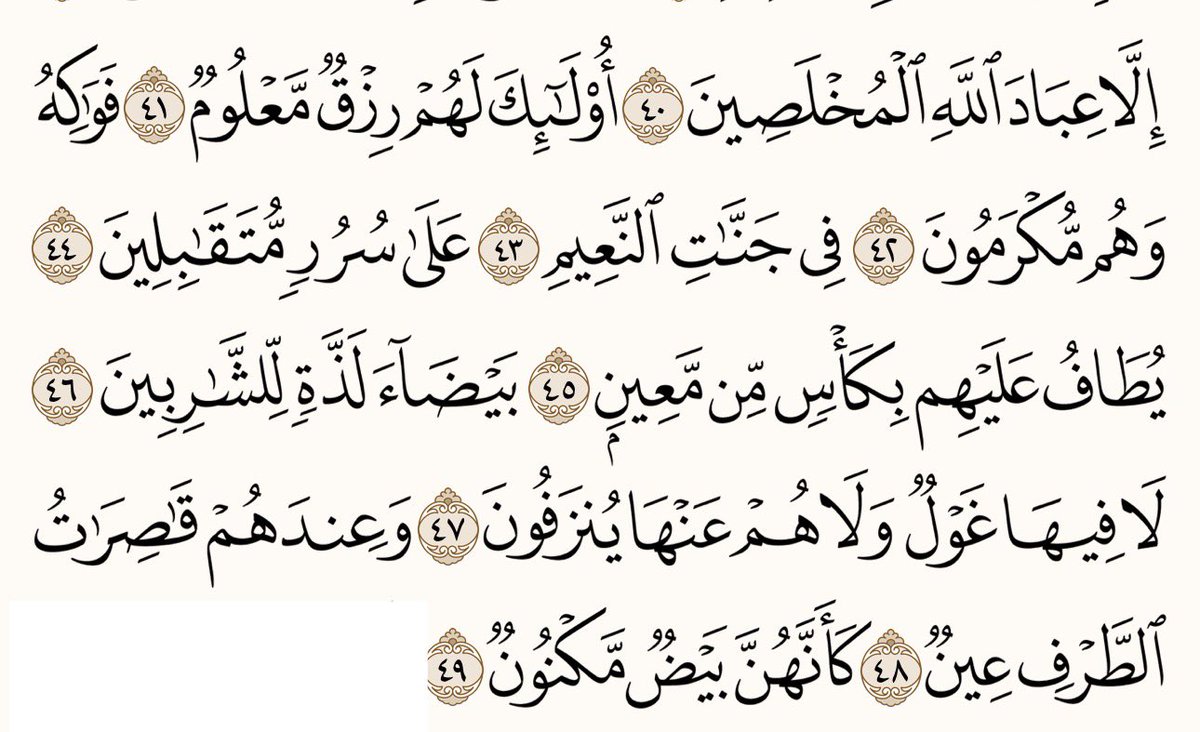 إِلَّا عِبَادَ ٱللَّهِ ٱلْمُخْلَصِينَ ٤٠ أُو۟لَـٰٓئِكَ لَهُمْ رِزْقٌ مَّعْلُومٌ ٤١ فَوَٰكِهُ
وَهُم مُّكْرَمُونَ ٤٢ فِى جَنَّـٰتِ ٱلنَّعِيمِ ٤٣ عَلَىٰ سُرُرٍ مُّتَقَـٰبِلِينَ ٤٤
يُطَافُ عَلَيْهِم بِكَأْسٍ مِّن مَّعِينٍۭ ٤٥ بَيْضَآءَ لَذَّةٍ لِّلشَّـٰرِبِينَ ٤٦
لَا فِيهَا غَوْلٌ وَلَا هُمْ عَنْهَا يُنزَفُونَ ٤٧ وَعِندَهُمْ قَـٰصِرَٰتُ
ٱلطَّرْفِ عِينٌ ٤٨ كَأَنَّهُنَّ بَيْضٌ مَّكْنُونٌ ٤٩